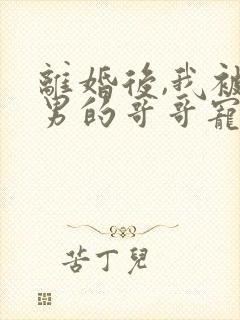 離婚後,我被
男的哥哥寵
苦丁兒